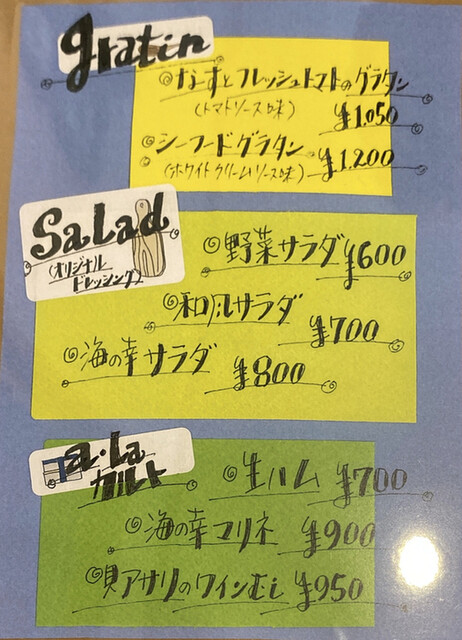 gratin
◎なすとフレッシュトマトのグラタン
(トマトソース味) ¥1,050
◎シーフードグラタン ¥1,200
(ホワイトクリームソース味)
Salad
(オリジナルドレッシング)
◎野菜サラダ ¥600
◎和風サラダ ¥700
◎海の幸サラダ ¥800
a・la カルト
◎生ハム ¥700
◎海の幸マリネ ¥900
◎貝アサリのワインむし ¥950